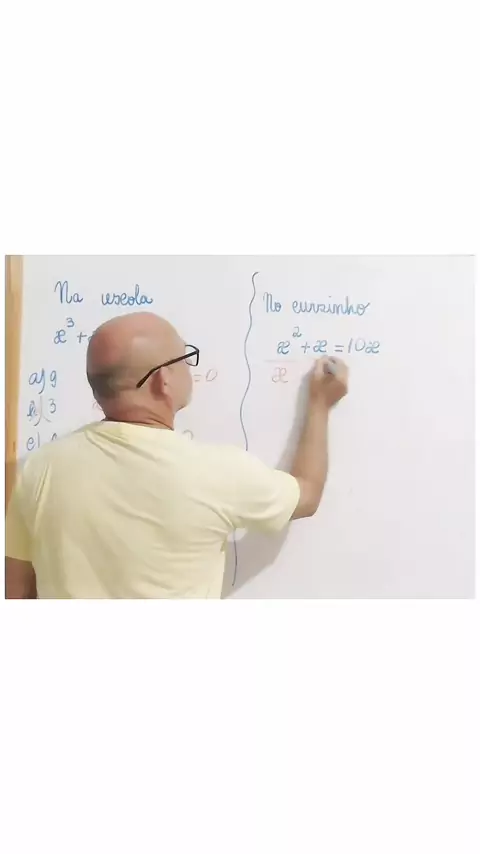 Na escola
x³ +
a) 9
= 0
b) 3
c)
No cursinho
x² + x = 10x
x